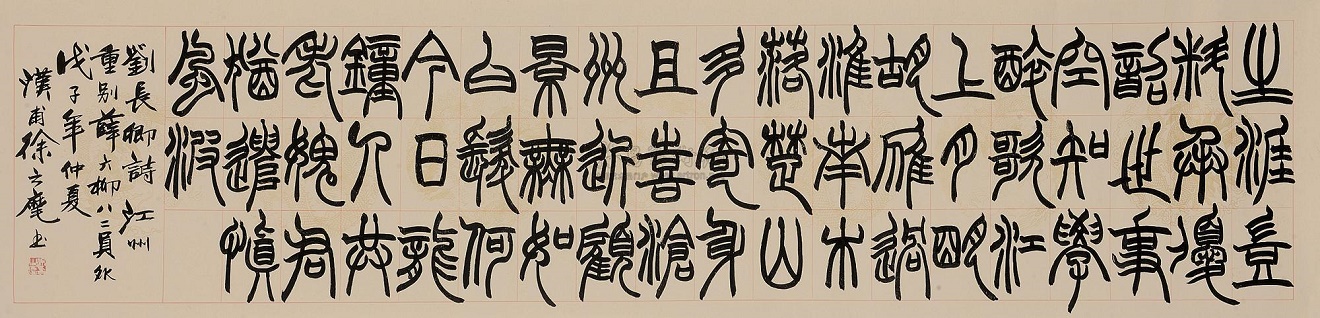 生涯豈
料承優
詔世事
空知學
醉歌江
上月明
胡雁過
淮南木
落楚山
多寄身
且喜滄
州近顧
景無如
白髮何
今日龍
鐘人共
老愧君
猶遣慎
風波
劉長卿詩 江州
重别薛六柳八二員外
戊子年仲夏
徐之书